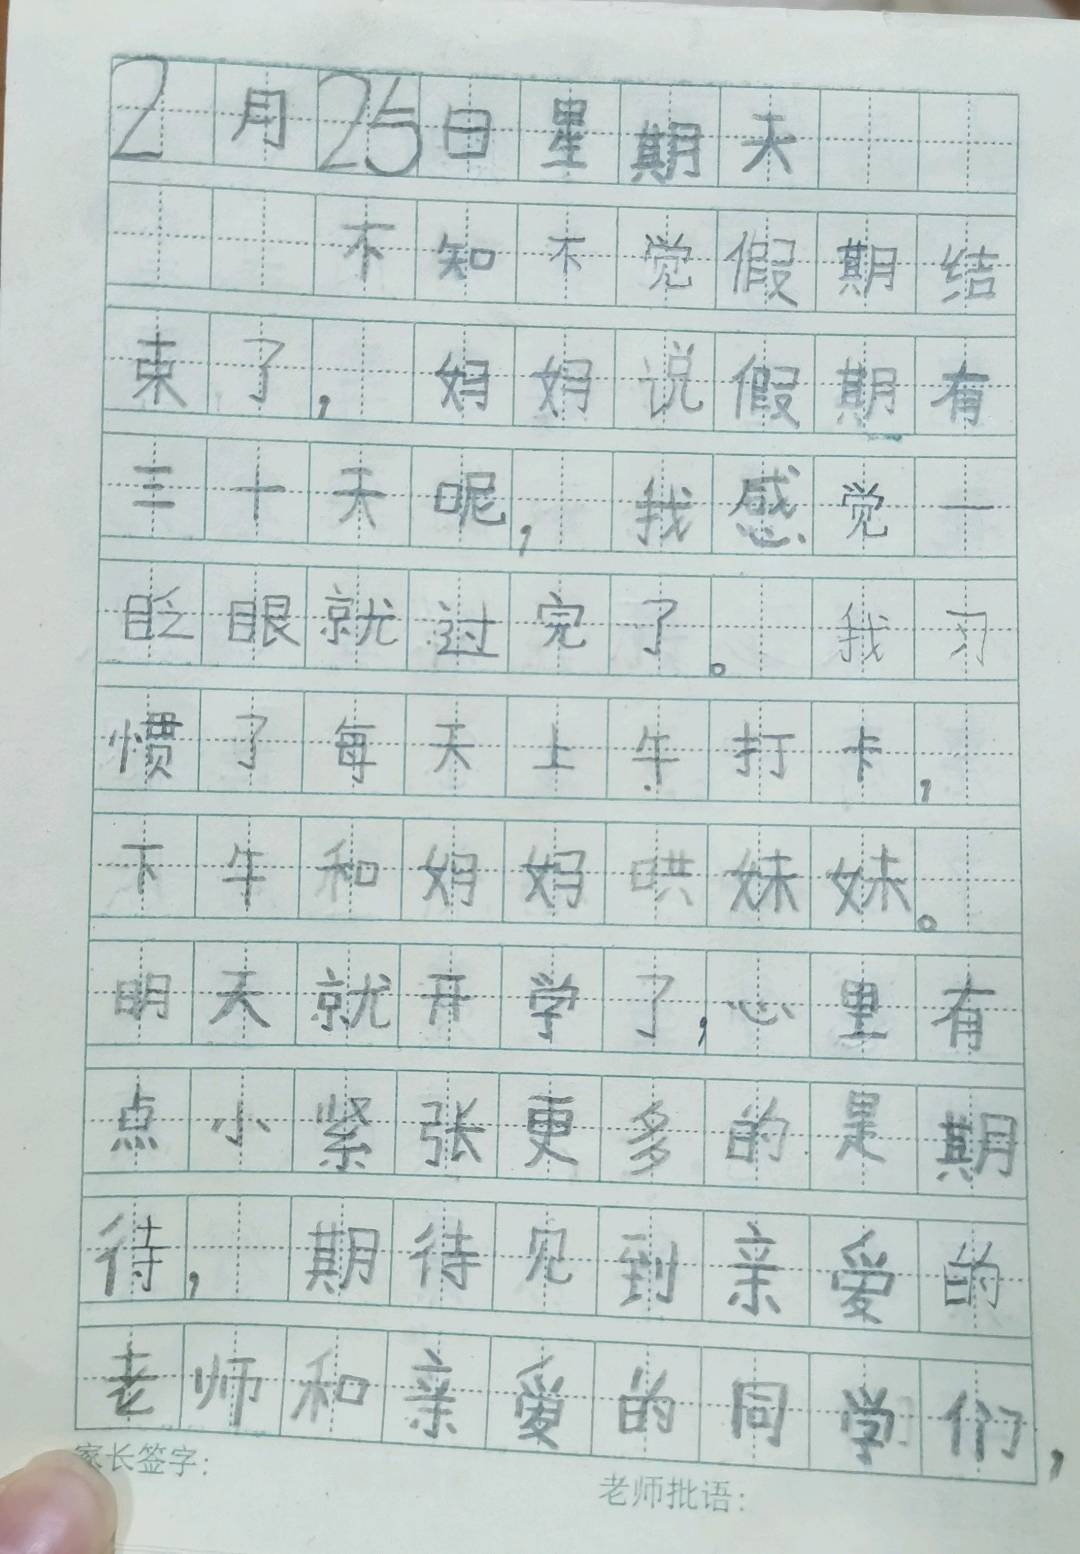 2月25日星期天
不知不觉假期结
束了，妈妈说假期有
三十天呢，我感觉一
眨眼就过完了。我习
惯了每天上午打卡，
下午和妈妈哄妹妹。
明天就开学了，心里有
点小紧张更多的是期
待，期待见到亲爱的
老师和亲爱的同学们，
家长签字：
老师批语：